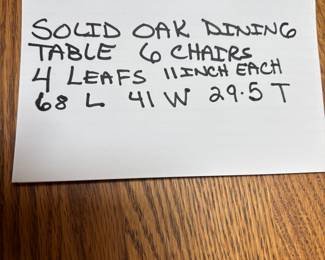 SOLID OAK DINING
TABLE 6 CHAIRS
4 LEAFS 11 INCH EACH
68 L 41 W 29.5 T